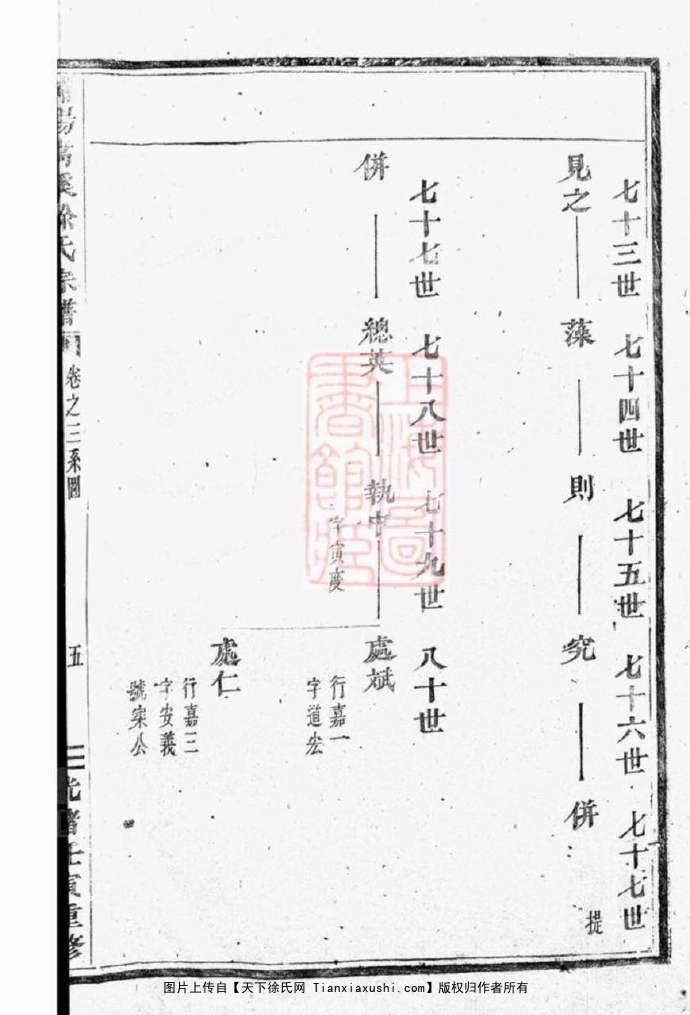 七十三世 七十四世 七十五世 七十六世 七十七世
見之 藻 則 究 倂
提
七十七世 七十八世 七十九世 八十世
倂 總英 執中 處斌
字寅度
行嘉一
字道宏
處仁
行嘉三
字安義
號寀公
徐氏宗譜 卷之三系圖 五 光緒壬寅重修
上海圖書館藏
图片上传自【天下徐氏网 Tianxiaxushi.com】版权归作者所有